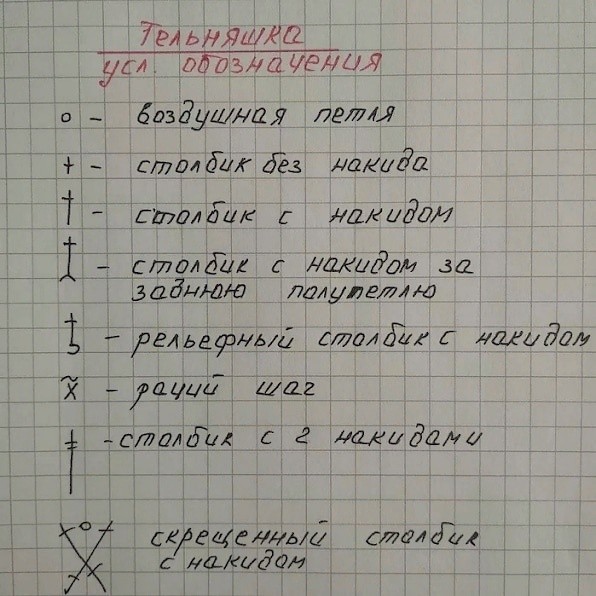 Тельняшка
усл. обозначения
о - воздушная петля
+ - столбик без накида
† - столбик с накидом
- столбик с накидом за
заднюю полупетлю
- рельефный столбик с накидом
x̃ - рачий шаг
- столбик с 2 накидами
скрещенный столбик
с накидом